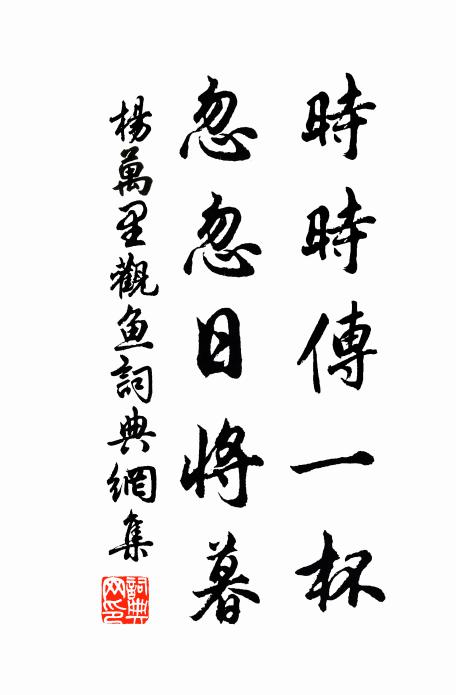 時時傳一杯
忽忽日將暮
楊萬里觀魚詞典網集
詞典網印